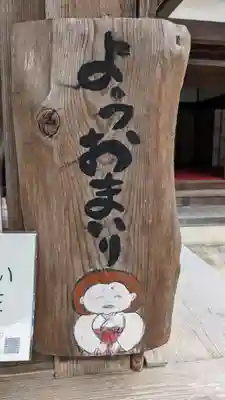 ようおまいり
い